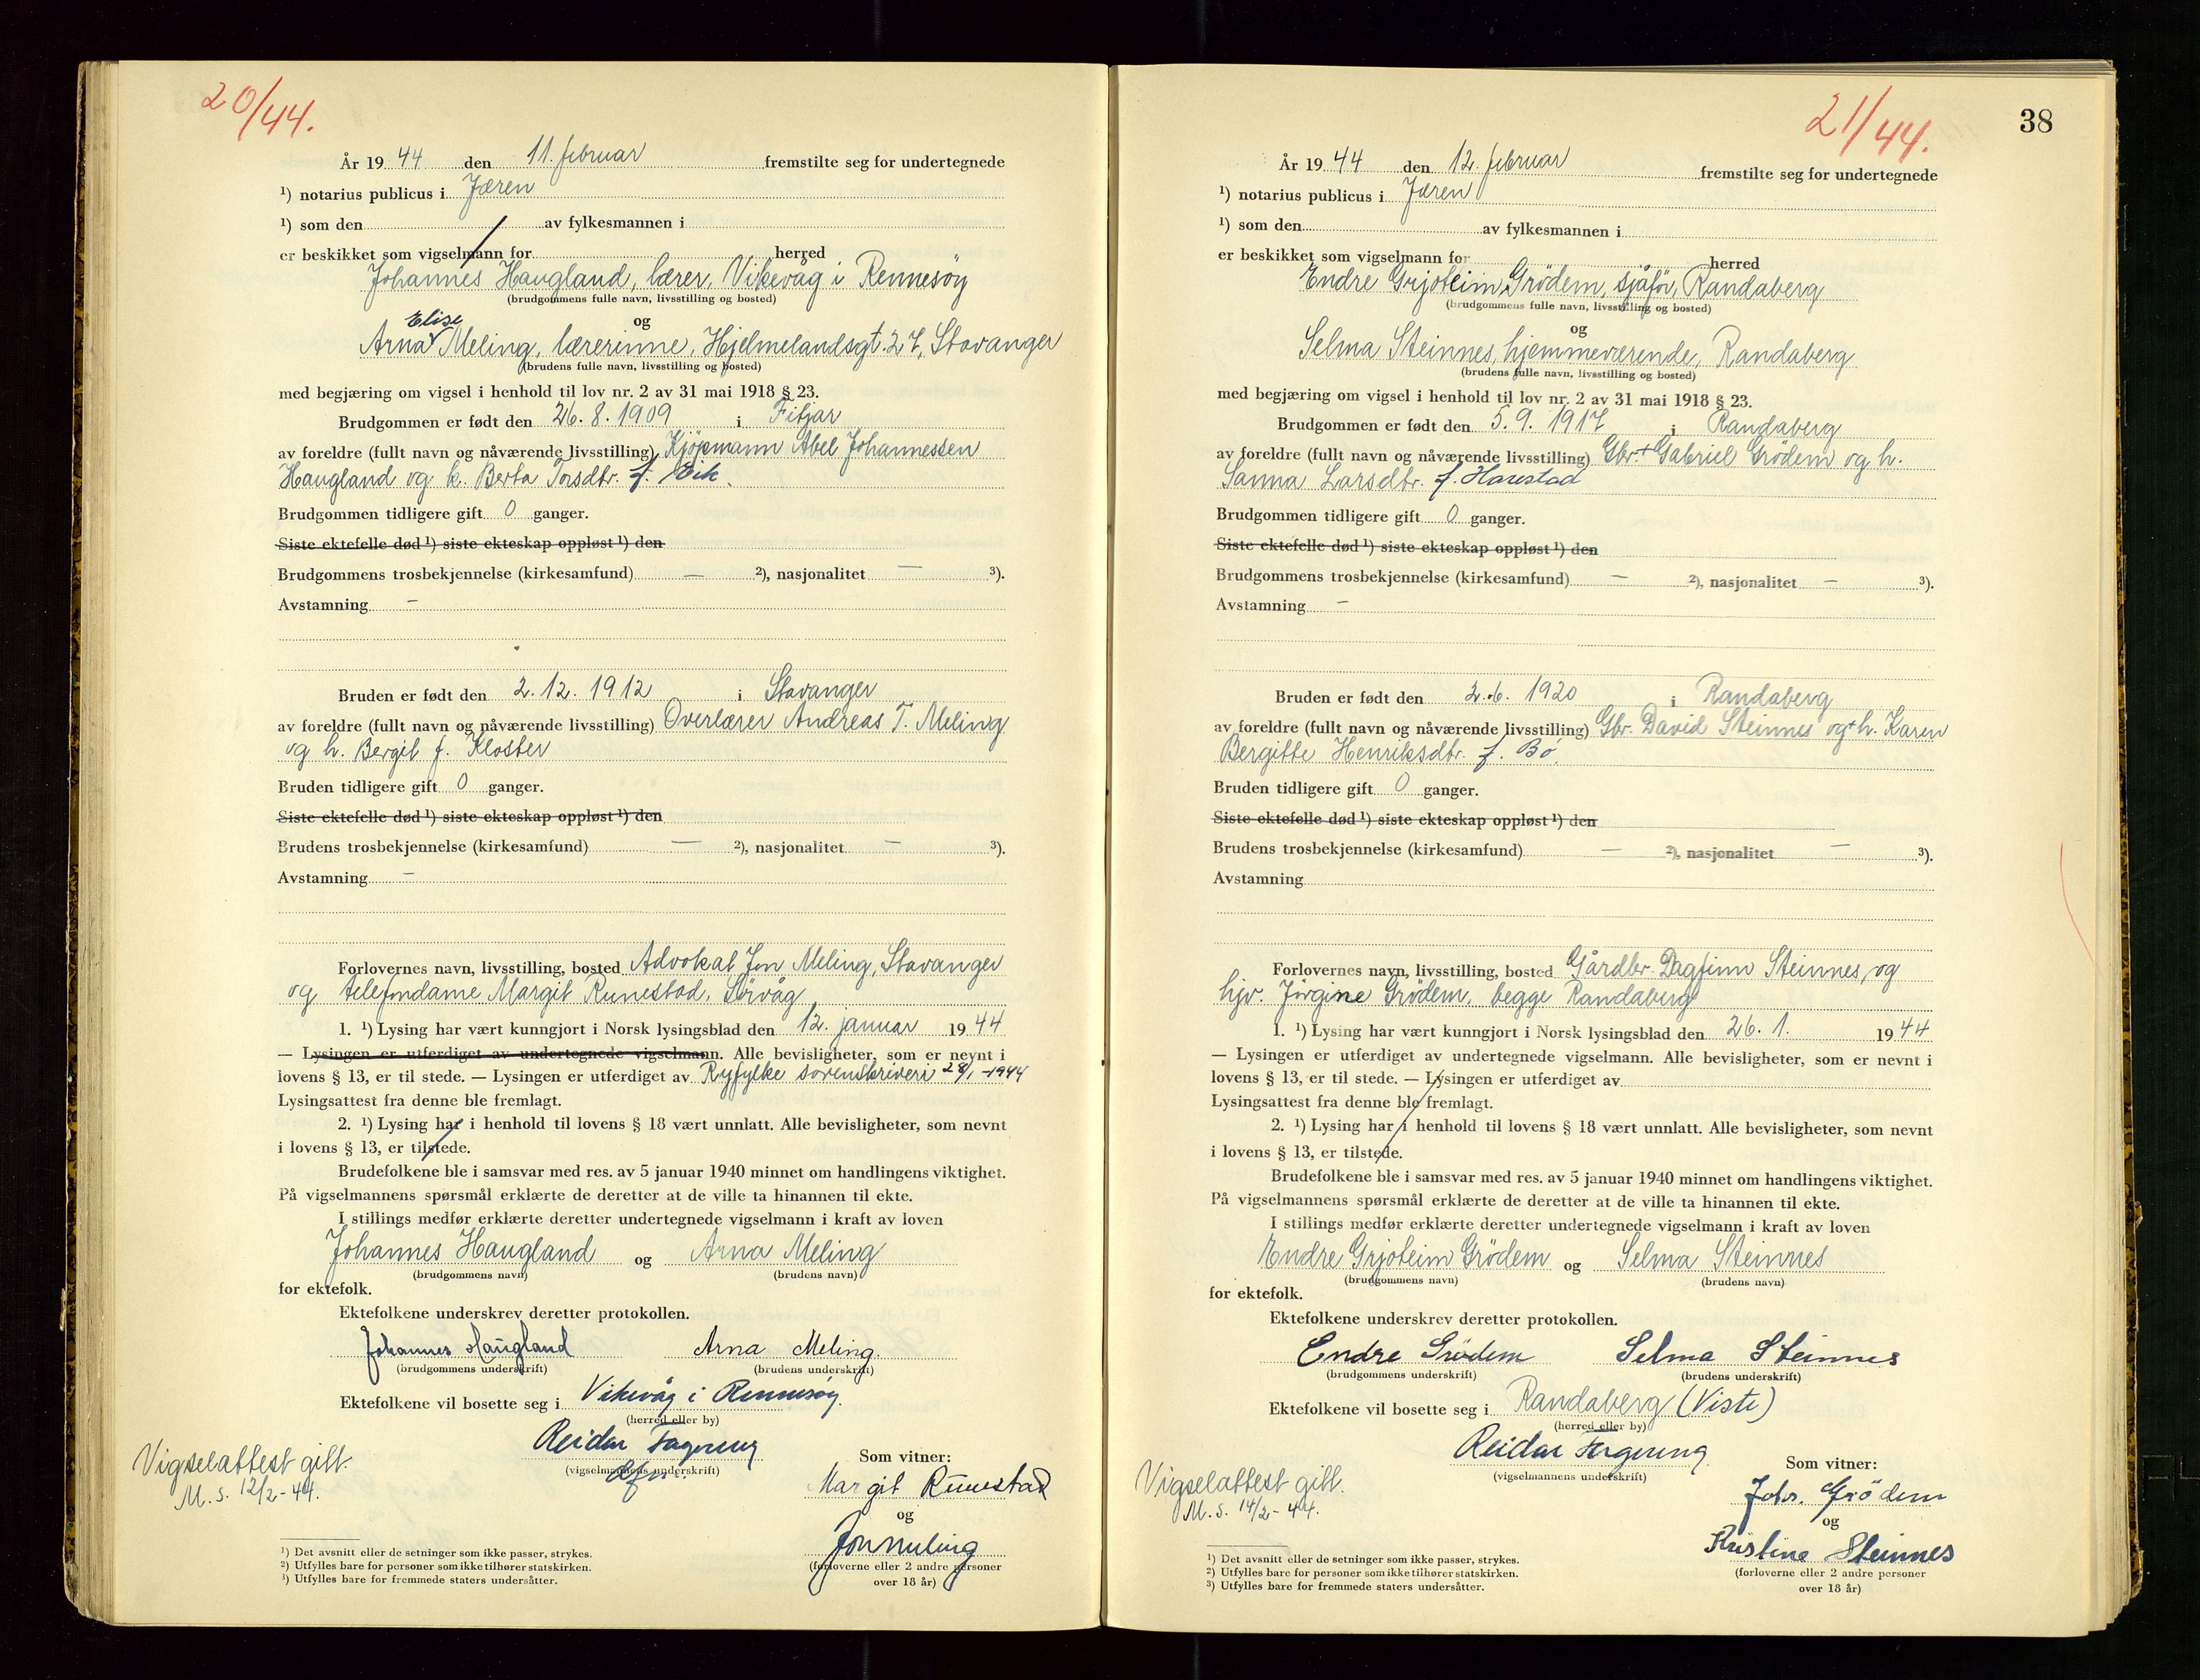 20/44.
År 19 44 den 11. februar fremstilte seg for undertegnede
¹) notarius publicus i Jæren
¹) som den av fylkesmannen i
er beskikket som vigselmann for herred
Johannes Haugland, lærer, Vikevåg i Rennesöy
(brudgommens fulle navn, livsstilling og bosted)
og
Elise
Arna Meling, lærerinne, Hjelmelandsgt. 27, Stavanger
(brudens fulle navn, livsstilling og bosted)
med begjæring om vigsel i henhold til lov nr. 2 av 31 mai 1918 § 23.
Brudgommen er født den 26. 8. 1909 i Fitjar
av foreldre (fullt navn og nåværende livsstilling) Kjöpmann Abel Johannessen
Haugland og k. Berta Torsdtr. f. Eik.
Brudgommen tidligere gift 0 ganger.
Siste ektefelle død ¹) siste ekteskap oppløst ¹) den
Brudgommens trosbekjennelse (kirkesamfund) — ²), nasjonalitet — ³).
Avstamning –
Bruden er født den 2. 12. 1912 i Stavanger
av foreldre (fullt navn og nåværende livsstilling) Overlærer Andreas T. Meling
og h. Bergit f. Kloster
Bruden tidligere gift 0 ganger.
Siste ektefelle død ¹) siste ekteskap oppløst ¹) den
Brudens trosbekjennelse (kirkesamfund) — ²), nasjonalitet — ³).
Avstamning –
Forlovernes navn, livsstilling, bosted Advokat Jon Meling, Stavanger
og telefondame Margit Runestad, Sörvåg
1. ¹) Lysing har vært kunngjort i Norsk lysingsblad den 12. januar 19 44
— Lysingen er utferdiget av undertegnede vigselmann. Alle bevisligheter, som er nevnt i
lovens § 13, er til stede. — Lysingen er utferdiget av Ryfylke sorenskriveri 28/1 - 1944
Lysingsattest fra denne ble fremlagt.
2. ¹) Lysing har i henhold til lovens § 18 vært unnlatt. Alle bevisligheter, som nevnt
i lovens § 13, er tilstede.
Brudefolkene ble i samsvar med res. av 5 januar 1940 minnet om handlingens viktighet.
På vigselmannens spørsmål erklærte de deretter at de ville ta hinannen til ekte.
I stillings medfør erklærte deretter undertegnede vigselmann i kraft av loven
Johannes Haugland og Arna Meling
(brudgommens navn) (brudens navn)
for ektefolk.
Ektefolkene underskrev deretter protokollen.
Johannes Haugland Arna Meling.
(brudgommens underskrift) (brudens underskrift)
Ektefolkene vil bosette seg i Vikevåg i Rennesöy.
(herred eller by)
Reidar Fagerung
(vigselmannens underskrift)
Vigselattest gitt.
M. S. 12/2 - 44.
Som vitner:
Margit Runestad
og
Jon Meling
(forloverne eller 2 andre personer
over 18 år)
¹) Det avsnitt eller de setninger som ikke passer, strykes.
²) Utfylles bare for personer som ikke tilhører statskirken.
³) Utfylles bare for fremmede staters undersåtter.
21/44.
38
År 19 44 den 12. februar fremstilte seg for undertegnede
¹) notarius publicus i Jæren
¹) som den av fylkesmannen i
er beskikket som vigselmann for herred
Endre Grjoteim Grödem, sjåför, Randaberg
(brudgommens fulle navn, livsstilling og bosted)
og
Selma Steinnes, hjemmeværende, Randaberg
(brudens fulle navn, livsstilling og bosted)
med begjæring om vigsel i henhold til lov nr. 2 av 31 mai 1918 § 23.
Brudgommen er født den 5. 9. 1917 i Randaberg
av foreldre (fullt navn og nåværende livsstilling) Gbr. + Gabriel Grödem og h.
Sanna Larsdtr. f. Harestad
Brudgommen tidligere gift 0 ganger.
Siste ektefelle død ¹) siste ekteskap oppløst ¹) den
Brudgommens trosbekjennelse (kirkesamfund) — ²), nasjonalitet — ³).
Avstamning –
Bruden er født den 2. 6. 1920 i Randaberg
av foreldre (fullt navn og nåværende livsstilling) Gbr. David Steinnes og + h. Karen
Bergitte Henriksdtr. f. Bö.
Bruden tidligere gift 0 ganger.
Siste ektefelle død ¹) siste ekteskap oppløst ¹) den
Brudens trosbekjennelse (kirkesamfund) — ²), nasjonalitet — ³).
Avstamning
Forlovernes navn, livsstilling, bosted Gårdbr. Dagfinn Steinnes, og
hjv. Jörgine Grödem, begge Randaberg
1. ¹) Lysing har vært kunngjort i Norsk lysingsblad den 26. 1. 19 44
— Lysingen er utferdiget av undertegnede vigselmann. Alle bevisligheter, som er nevnt i
lovens § 13, er til stede. — Lysingen er utferdiget av
Lysingsattest fra denne ble fremlagt.
2. ¹) Lysing har i henhold til lovens § 18 vært unnlatt. Alle bevisligheter, som nevnt
i lovens § 13, er tilstede.
Brudefolkene ble i samsvar med res. av 5 januar 1940 minnet om handlingens viktighet.
På vigselmannens spørsmål erklærte de deretter at de ville ta hinannen til ekte.
I stillings medfør erklærte deretter undertegnede vigselmann i kraft av loven
Endre Grjoteim Grödem og Selma Steinnes
(brudgommens navn) (brudens navn)
for ektefolk.
Ektefolkene underskrev deretter protokollen.
Endre Grödem Selma Steinnes
(brudgommens underskrift) (brudens underskrift)
Ektefolkene vil bosette seg i Randaberg (Viste)
(herred eller by)
Reidar Fagerung
(vigselmannens underskrift)
Vigselattest gitt.
M. S. 14/2 - 44.
Som vitner:
Johs. Grödem
og
Kristine Steinnes
(forloverne eller 2 andre personer
over 18 år)
¹) Det avsnitt eller de setninger som ikke passer, strykes.
²) Utfylles bare for personer som ikke tilhører statskirken.
³) Utfylles bare for fremmede staters undersåtter.